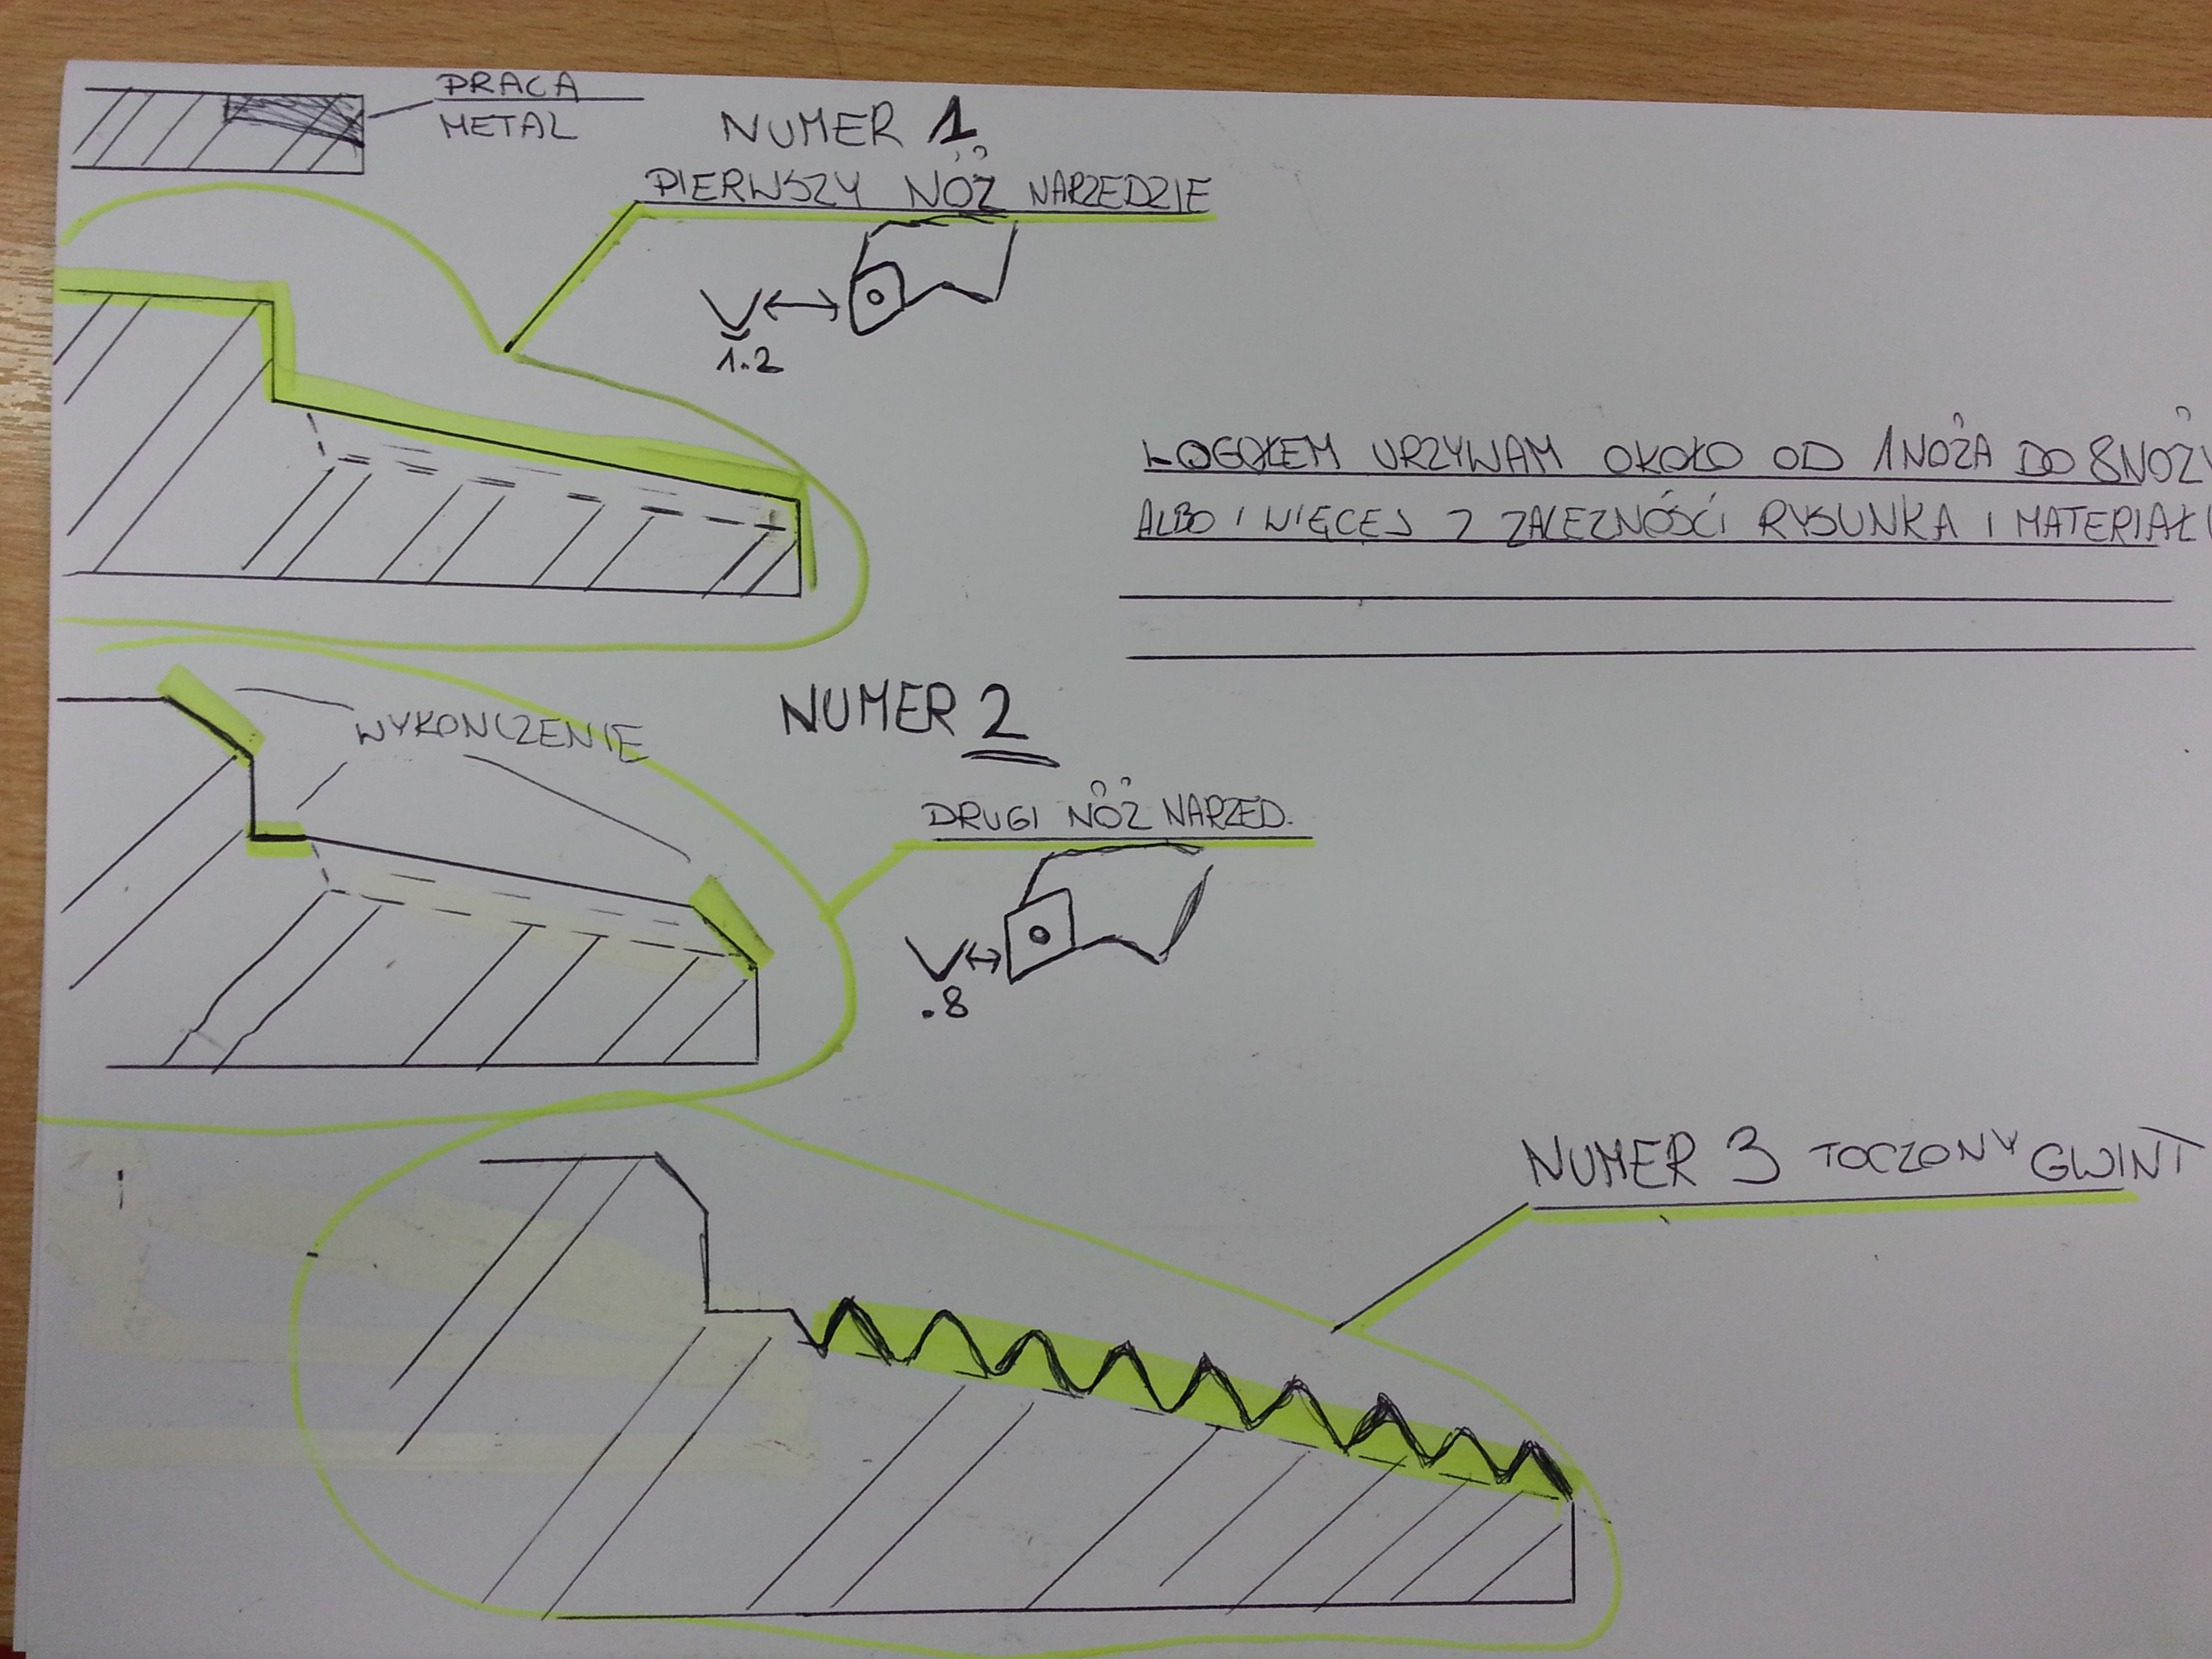 PRACA
METAL
NUMER 1
PIERWSZY NÓŻ NARZEDZIE
1.2
WOGOŁEM URZYWAM OKOŁO OD 1 NOŻA DO 8 NOŻY
ALBO I WIĘCEJ Z ZALEZNÓŚCI RYSUNKA I MATERIAŁU
WYKONCZENIE
NUMER 2
DRUGI NÓŻ NARZED.
.8
NUMER 3 TOCZONY GWINT